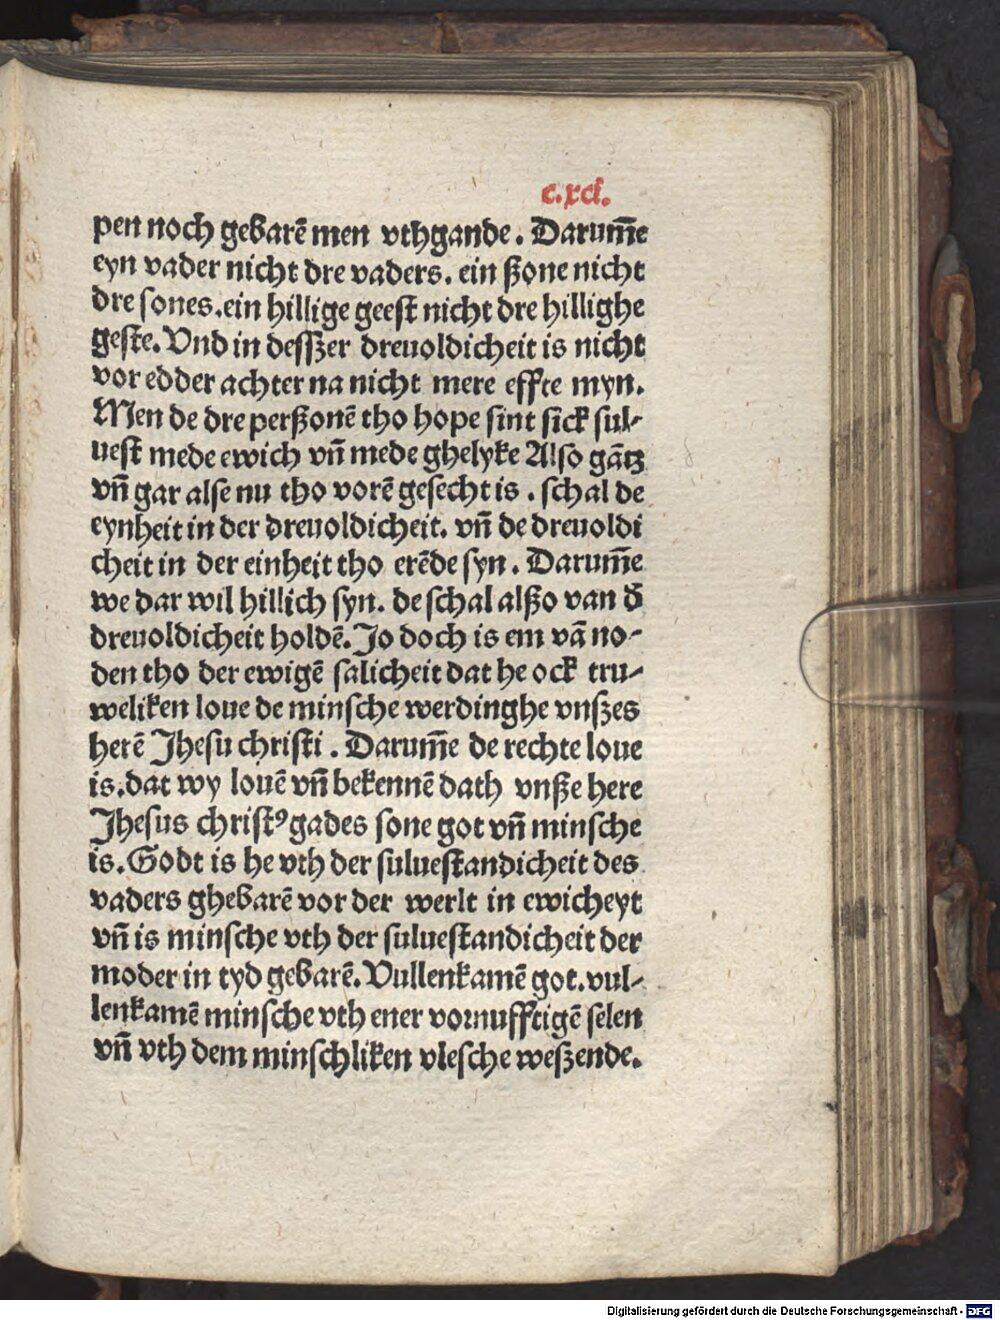 c.xci.
pen noch gebarē men vthgande. Darum̄e
eyn vader nicht dre vaders. ein ßone nicht
dre ſones.ein hillige geeſt nicht dre hillighe
geſte. Vnd in deſſzer dreuoldicheit is nicht
vor edder achter na nicht mere effte myn.
Men de dre perßonē tho hope ſint ſick ſul⸗
ueſt mede ewich vn̄ mede ghelyke Alſo gātz
vn̄ gar alſe nu tho vorē geſecht is. ſchal de
eynheit in der dreuoldicheit. vn̄ de dreuoldi
cheit in der einheit tho erēde ſyn. Darum̄e
we dar wil hillich ſyn. de ſchal alßo van d̄
dreuoldicheit holdē. Jo doch is em vā no⸗
den tho der ewigē ſalicheit dat he ock tru⸗
weliken loue de minſche werdinghe vnſzes
herē Jheſu chriſti. Darum̄e de rechte loue
is.dat wy louē vn̄ bekennē dath vnße here
Jheſus chriſtꝰ gades ſone got vn̄ minſche
is. Godt is he vth der ſulueſtandicheit des
vaders ghebarē vor der werlt in ewicheyt
vn̄ is minſche vth der ſulueſtandicheit der
moder in tyd gebarē. Vullenkamē got. vul⸗
lenkamē minſche vth ener vornufftigē ſelen
vn̄ vth dem minſchliken vleſche weſzende.
Digitalisierung gefördert durch die Deutsche Forschungsgemeinschaft - DFG